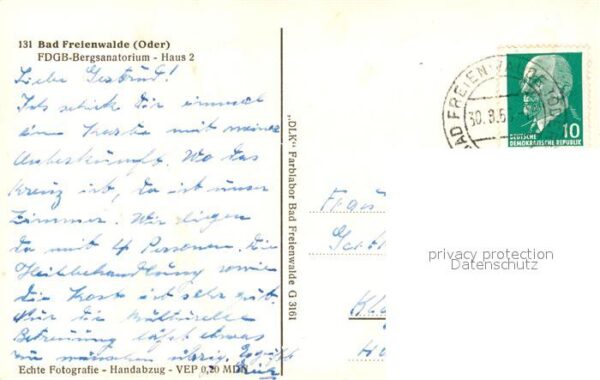 131 Bad Freienwalde (Oder)
FDGB-Bergsanatorium - Haus 2
Liebe Gertrud!
Ich schicke Dir einmal
eine Karte mit meiner
Unterkunft. Wo das
Kreuz ist, da ist unser
Zimmer. Wir liegen
da mit 4 Personen. Die
Heilbehandlung sowie
die Kost ist sehr gut.
Nur die kulturelle
Betreuung läßt etwas
zu wünschen übrig. Es grüßt
Echte Fotografie - Handabzug - VEP 0,20 MDN
„DLK“ Farblabor Bad Freienwalde G 3161
BAD FREIENWALDE (OD
30. 8. 6
10
DEUTSCHE
DEMOKRATISCHE REPUBLIK
Frau
Gert
privacy protection
Datenschutz